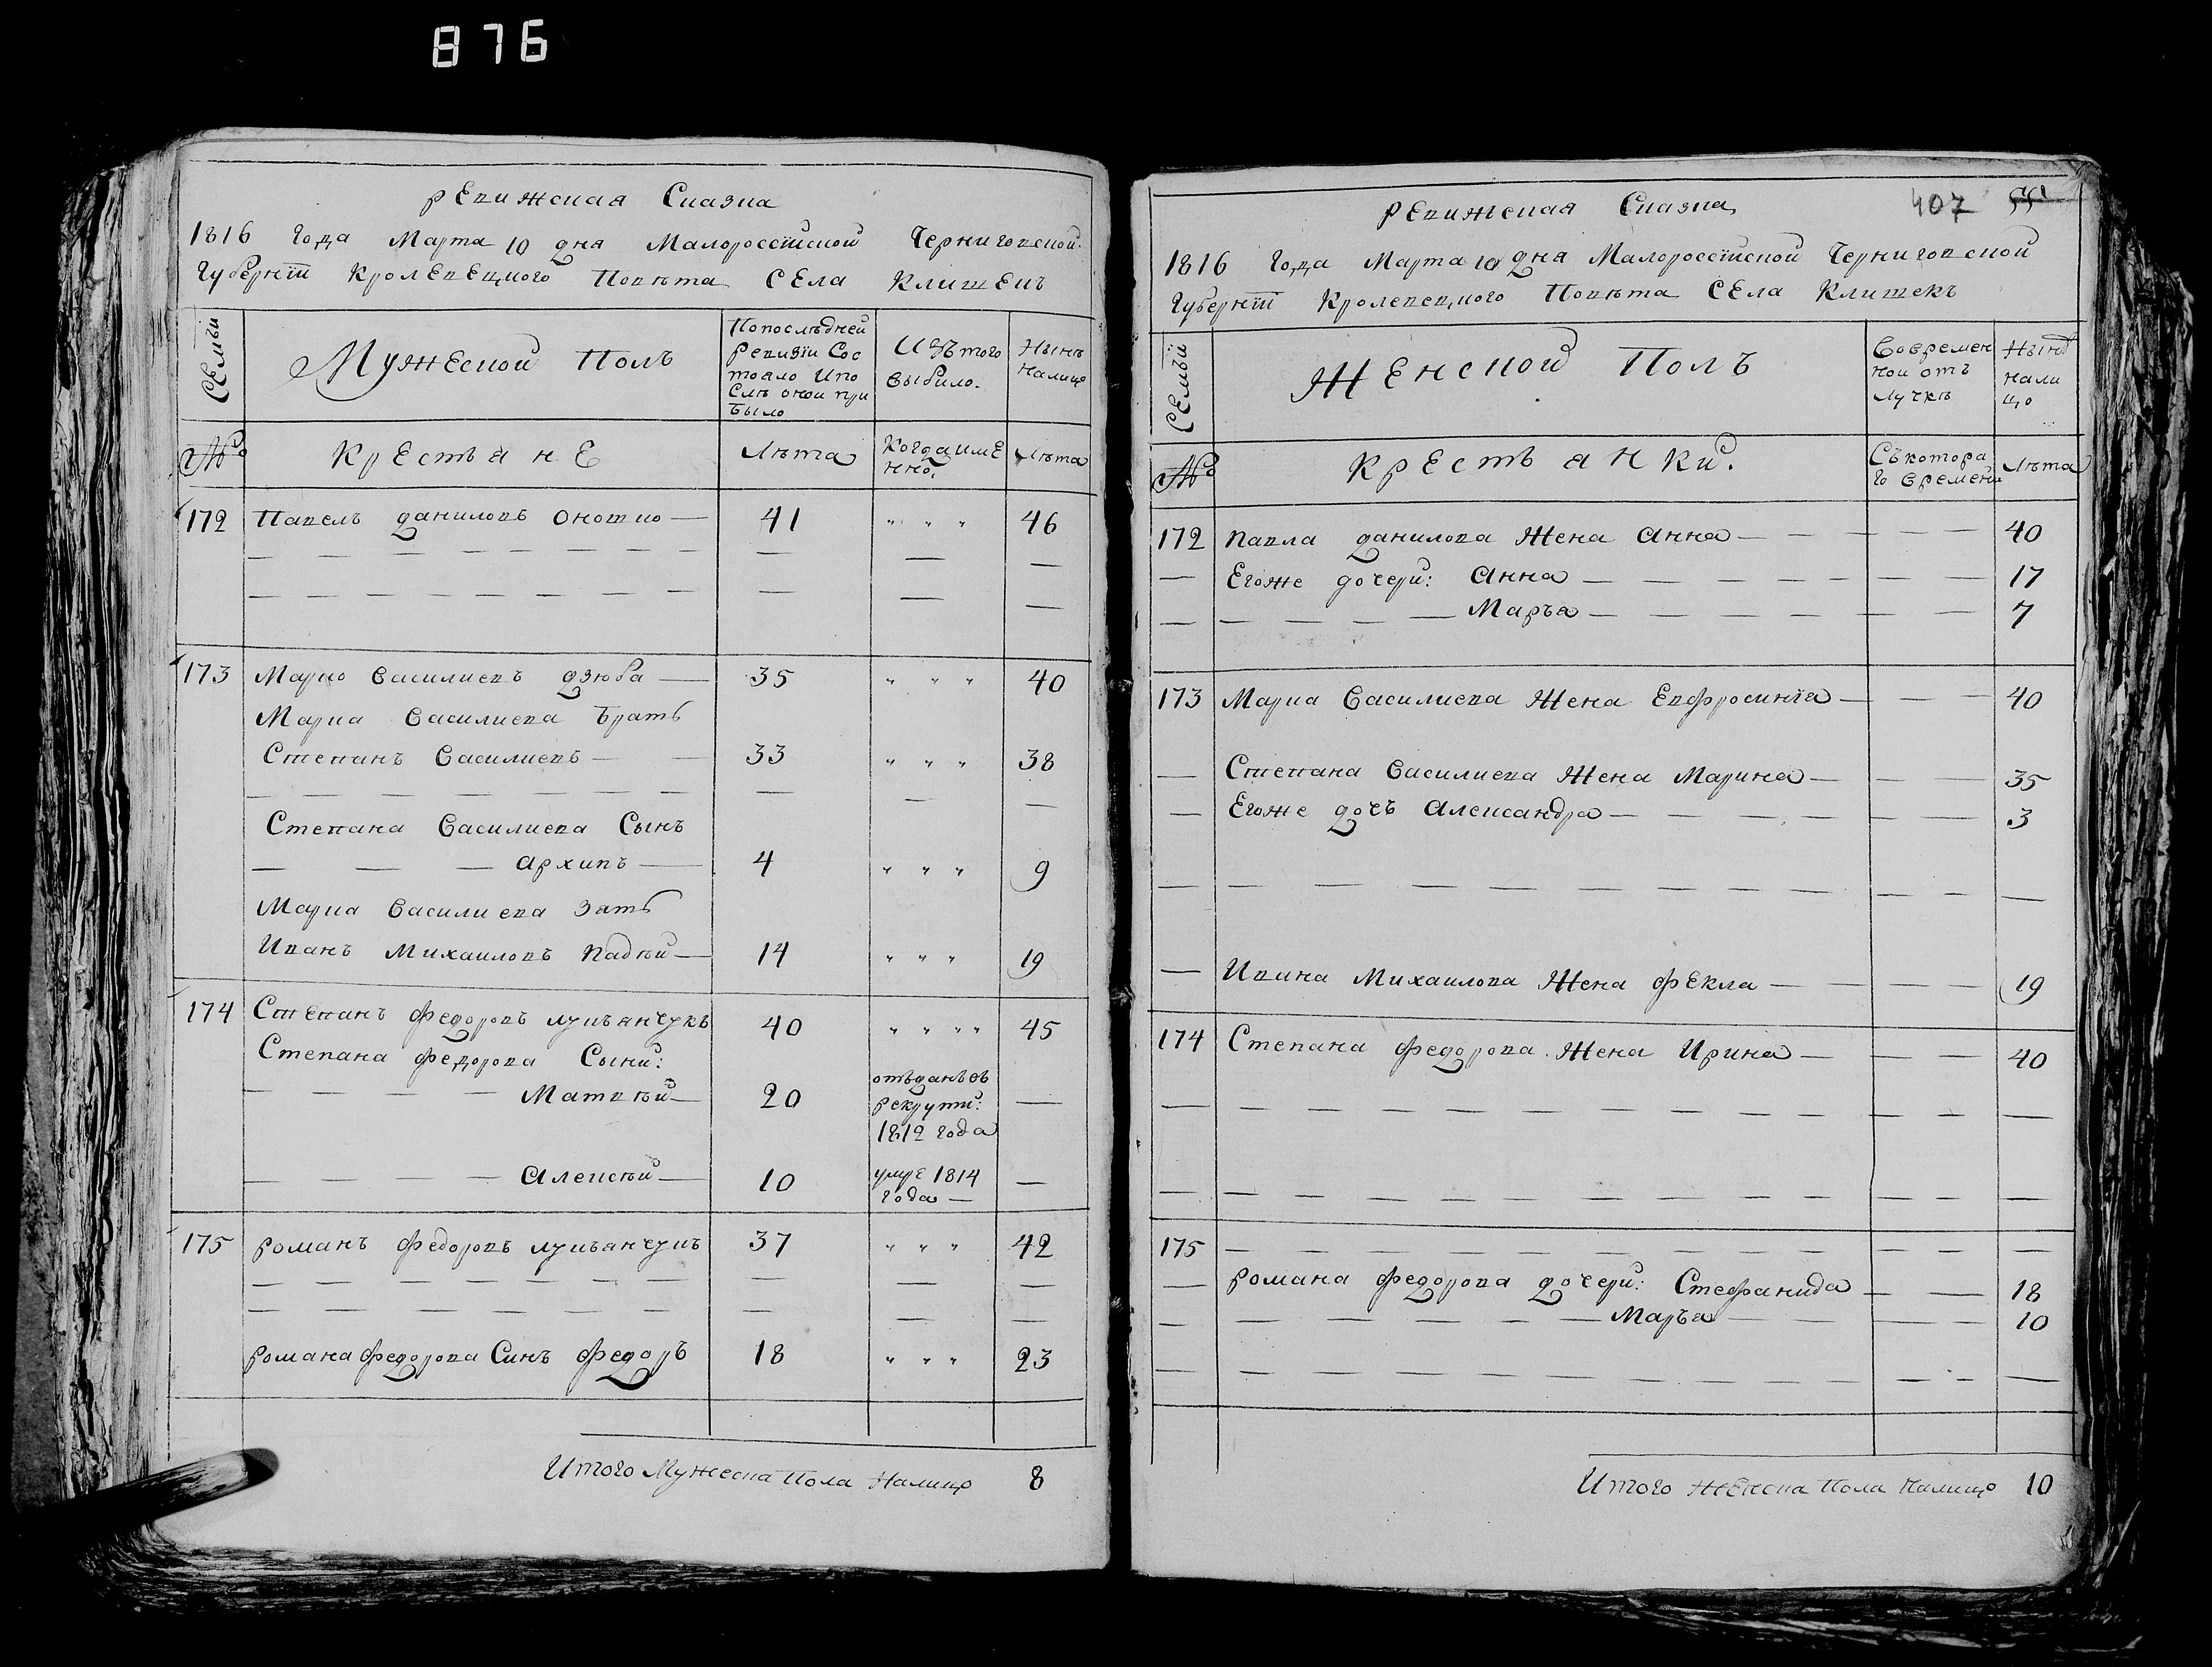 876
Ревижская Сказка
1816 года Марта 10 дня Малороссійской Черниговской
Губерніи Кролевецкого Повѣта Села Клишекъ
Семьи
Мужеской Полъ
По послѣдней ревизіи Состояло И после оной прибыло
Изъ того выбыло.
Нынѣ налицо
№
Крестьяне
Лѣта
Когда именно.
Лѣта
172 Павелъ Даниловъ Оношко — 41 " " " 46
173 Марко Василиевъ Дзюба — 35 " " " 40
Марка Василиева Братъ
Степанъ Василиевъ — 33 " " " 38
Степана Василиева Сынъ
Архипъ — 4 " " " 9
Марка Василиева Зать
Иванъ Михаиловъ Кадѣй — 14 " " " 19
174 Степанъ Федоровъ Лукъянчукъ 40 " " " " 45
Степана Федорова Сыни:
Матвѣй — 20 отъданъ въ рекрути: 1812 года —
Алексѣй — 10 умре 1814 года — —
175 Романъ Федоровъ Лукъянчукъ 37 " " " 42
Романа Федорова Синъ Федоръ 18 " " " 23
Итого Мужеска Пола Налицо 8
407
Ревижская Сказка
1816 года Марта 10 дня Малороссійской Черниговской
Губерніи Кролевецкого Повѣта Села Клишекъ
Семьи
Женской Полъ
Во временной отълучкѣ
Нынѣ налицо
№
Крестьянки.
Съ котораго времени
Лѣта
172 Павла Данилова Жена Анна — 40
— Егоже дочери: Анна — 17
— Маръа — 7
173 Марка Василиева Жена Евфросинія — 40
— Степана Василиева Жена Марина — 35
— Егоже дочъ Александра — 3
— Ивина Михаилова Жена Фекла — 19
174 Степана Федорова Жена Ирина — 40
175 —
— Романа Федорова дочери: Стефанида — 18
— Маръа — 10
Итого Женска Пола Налицо 10